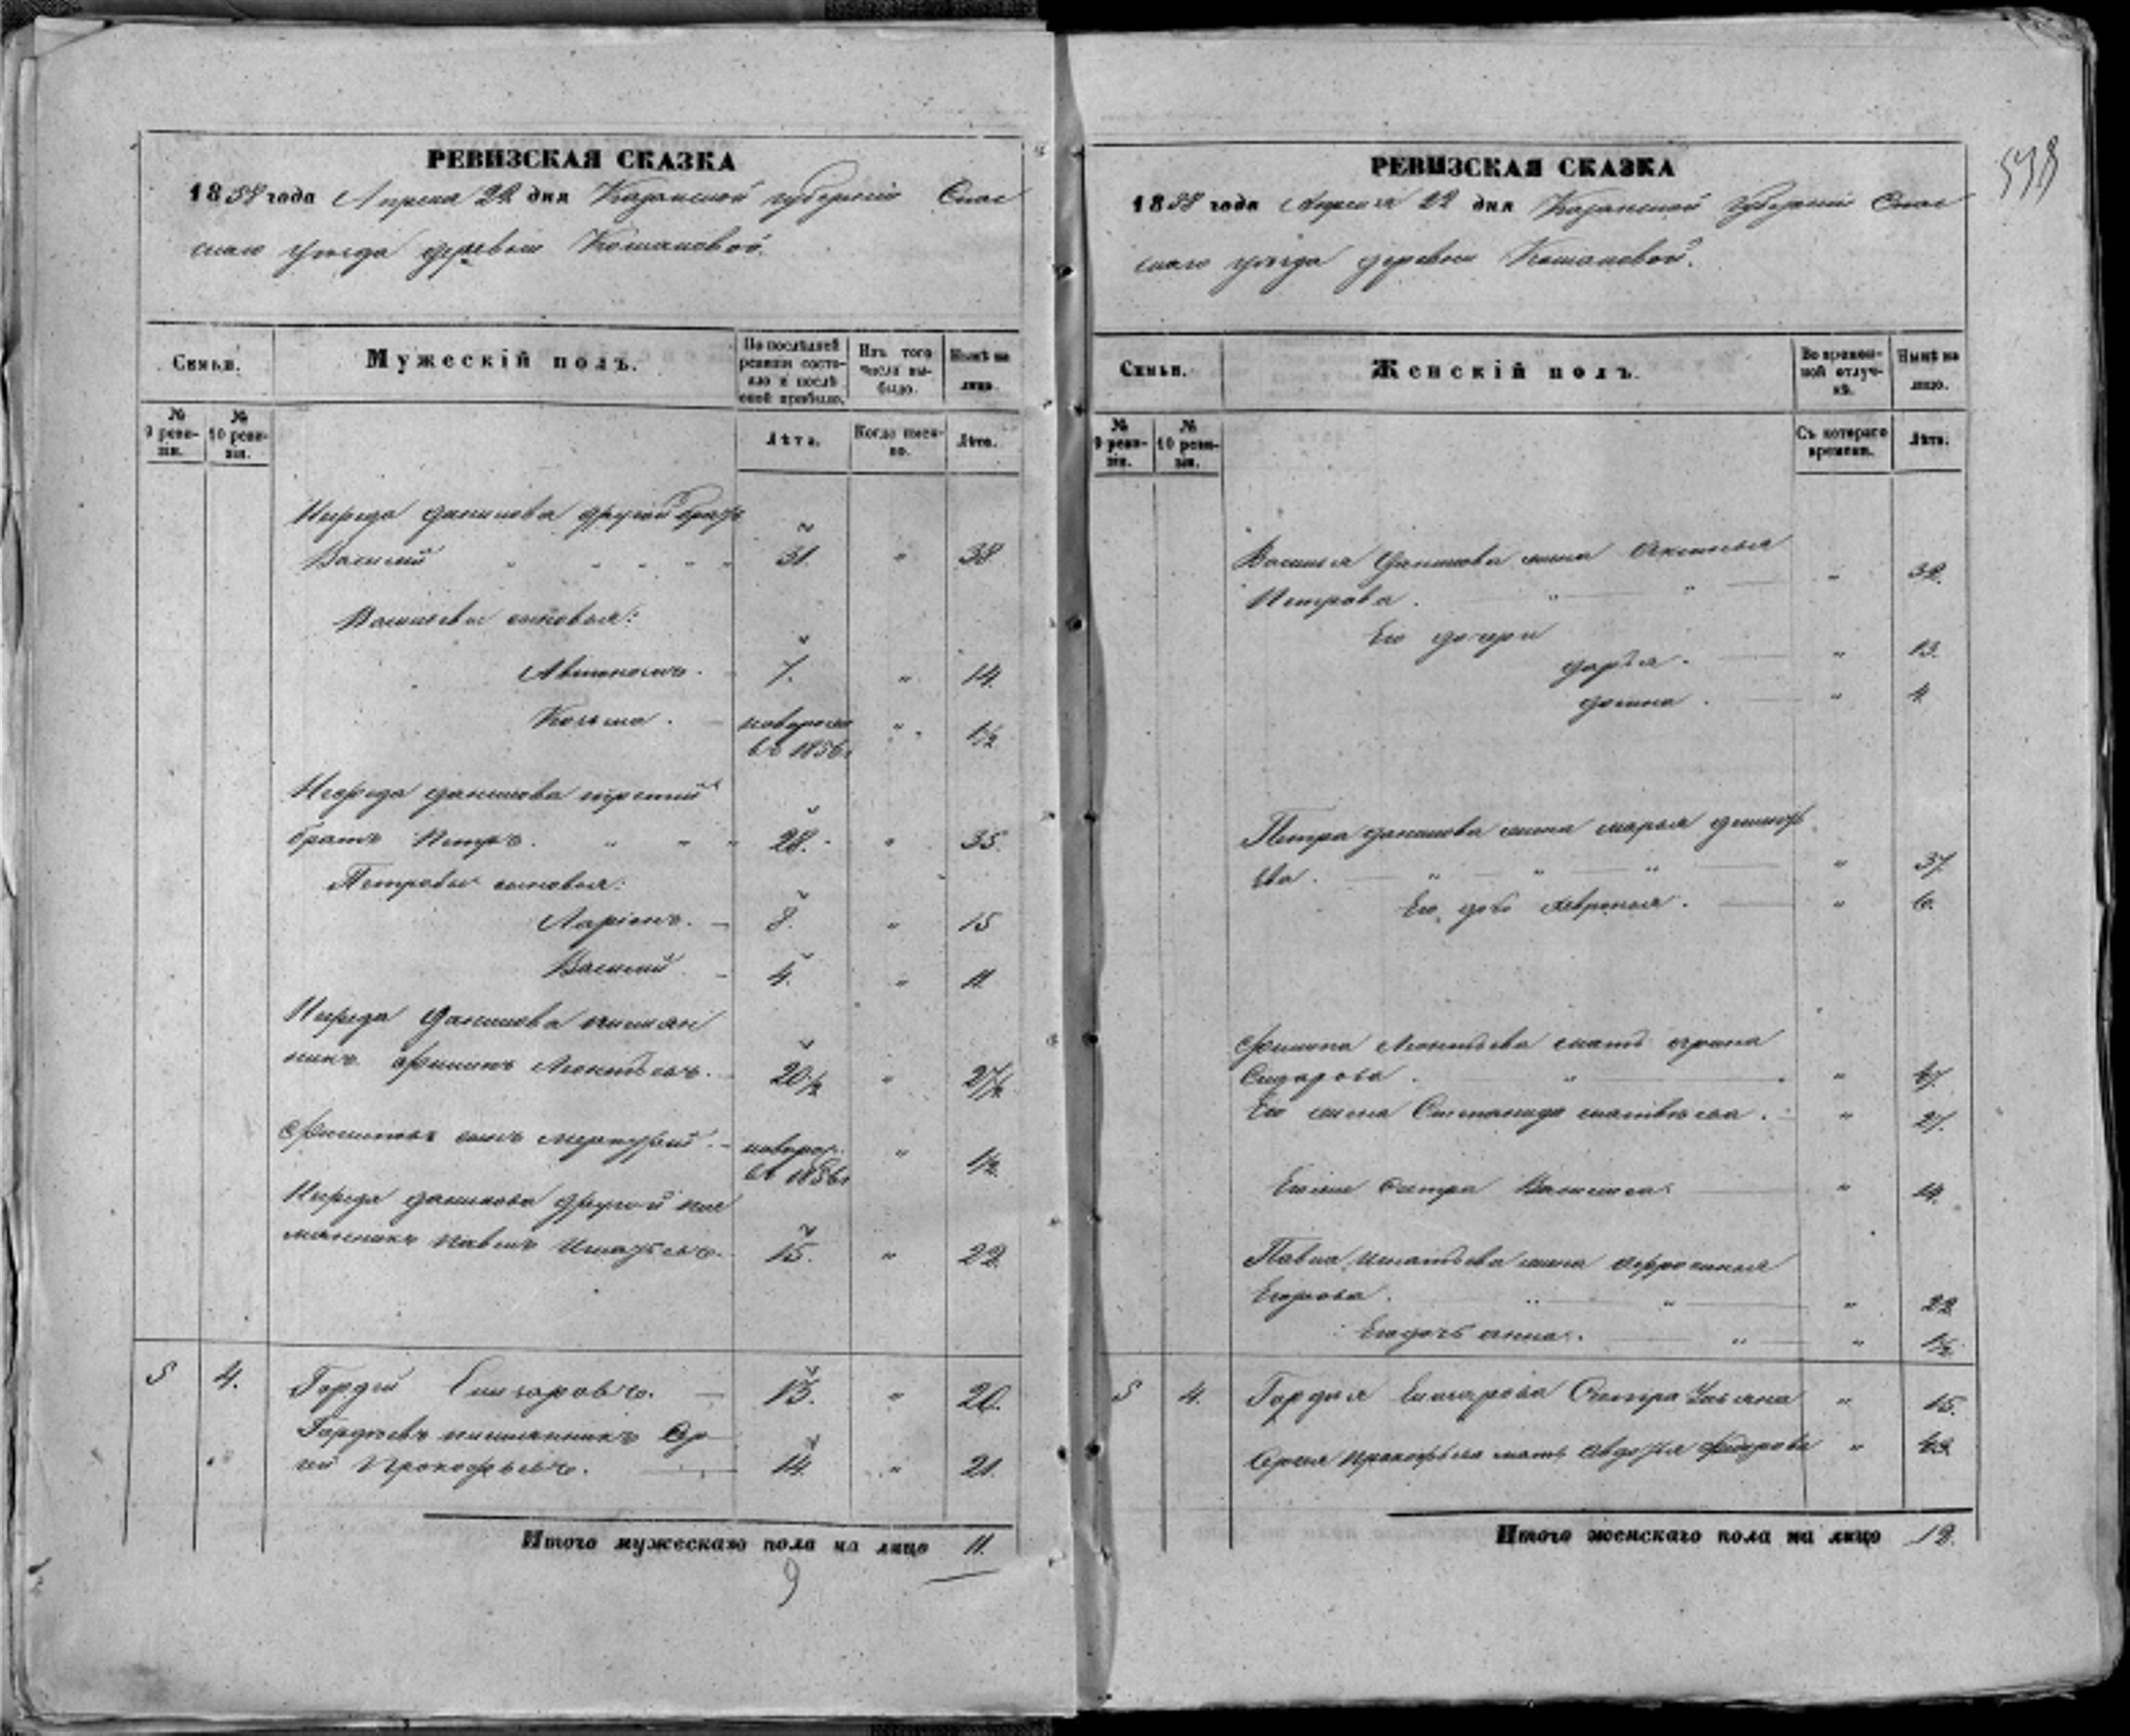 РЕВИЗСКАЯ СКАЗКА
1858 года Апреля 22 дня Казанской губернии Спас
скаго уезда деревни Кошановой.
Семьи.
Мужескій полъ.
По послѣдней ревизіи состояло и послѣ оной прибыло.
Изъ того числа выбыло.
Нынѣ на лицо.
№ 9 ревизіи.
№ 10 ревизіи.
Лѣта.
Когда именно.
Лѣта.
Данилова другой братъ
Василий 31. " 38
Васильевы сыновья:
Автономъ. 7. " 14.
Козьма. новорож въ 1856г " 1½
Данилова третий
братъ Петръ. 28. " 35.
Петровы сыновья:
Ларіонъ. 8. " 15
Василий 4. " 11
Данилова племян
никъ Филипъ Леонтьевъ. 20½ " 27½
Филиповъ сынъ Меркурий. новорож. въ 1856г " 1½
Данилова другой пле
мянникъ Павелъ Игнатьевъ. 15. " 22
5 4. Гордѣй Елизаровъ. 13. " 20.
Гордѣевъ племянникъ Сер
гей Прокофьевъ. 14. " 21.
Итого мужескаго пола на лицо 11.
9
538
РЕВИЗСКАЯ СКАЗКА
1858 года Апреля 22 дня Казанской губерніи Спас
скаго уезда деревни Кошановой.
Семьи.
Женскій полъ.
Во временной отлучкѣ.
Нынѣ на лицо.
№ 9 ревизіи.
№ 10 ревизіи.
Съ котораго времени.
Лѣта.
Василья Данилова жена Аксинья
Петрова. " 32.
Его дочери
Дарья. " 13.
Домна. " 4
Петра Данилова жена Марья Дмитр
ева. " 37.
Его дочь Феврония. " 6.
Филипа Леонтьева мать Ирина
Сидарова. " 47.
Его жена Степанида Матвѣева. " 27.
Сестра Василиса. " 14.
Павла Игнатьева жена Афросинья
Егорова. " 22
Его дочь Анна. " 1½
5 4. Гордѣя Елизарова Сестра Ульяна " 15.
Сергея Прокофьева мать Авдотья Федорова " 43.
Итого женскаго пола на лицо 12.